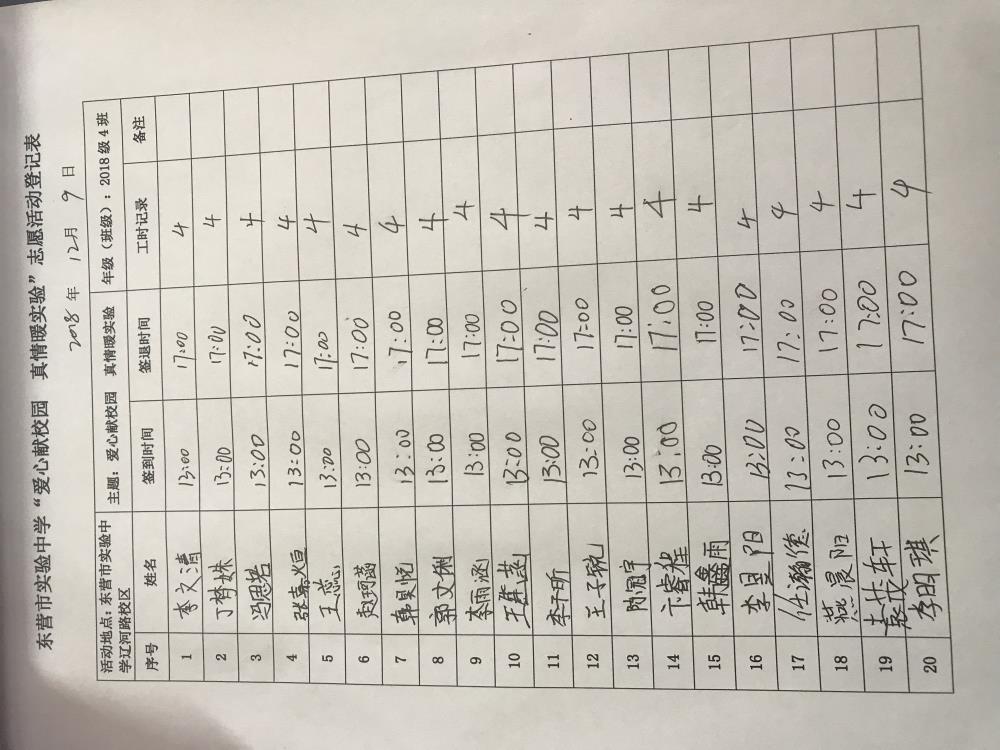 东营市实验中学“爱心献校园 真情暖实验”志愿活动登记表
2018年 12月 9日
活动地点：东营市实验中学辽河路校区 主题：爱心献校园 真情暖实验 年级（班级）：2018级4班
序号 姓名 签到时间 签退时间 工时记录 备注
1 李文清 13:00 17:00 4
2 丁梦姝 13:00 17:00 4
3 冯思若 13:00 17:00 4
4 13:00 17:00 4
5 王蕊 13:00 17:00 4
6 赵珂菡 13:00 17:00 4
7 韩昊悦 13:00 17:00 4
8 郭文俐 13:00 17:00 4
9 李雨涵 13:00 17:00 4
10 13:00 17:00 4
11 李子昕 13:00 17:00 4
12 王子锐 13:00 17:00 4
13 陈冠宇 13:00 17:00 4
14 13:00 17:00 4
15 韩鑫雨 13:00 17:00 4
16 李昱阳 13:00 17:00 4
17 任瀚德 13:00 17:00 4
18 燕晨阳 13:00 17:00 4
19 袁茂轩 13:00 17:00 4
20 李明琪 13:00 17:00 4